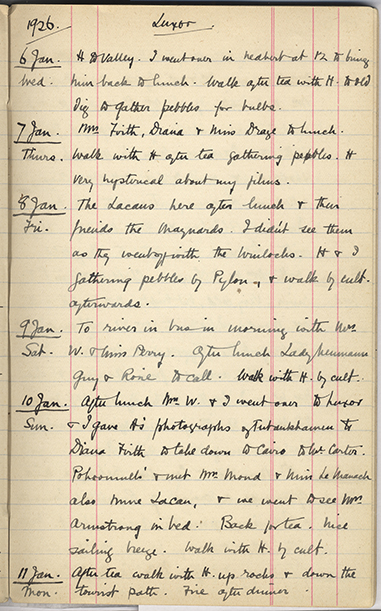 1926. Luxor.
6 Jan. H to Valley. I went over in at 12 to bring
Wed. him back to lunch. Walk after tea with H. to old
dig to gather pebbles for bulbs.
7 Jan. Mrs Firth, Diana & Miss to lunch.
Thurs. Walk with H after tea gathering pebbles. H
very hysterical about my films.
8 Jan. The Lacaus here after lunch & their
Fri. friends the Maynards. I didn't see them
as they went off with the Winlocks. H & I
gathering pebbles by Pylon, & walk by cult.
afterwards.
9 Jan. To river in bus in morning with Mrs
Sat. W. & Miss Perry. After lunch Lady
Guy & Rosie to call. Walk with H. by cult.
10 Jan. After lunch Mrs W. & I went over to Luxor
Sun. & I gave H's photographs of Tutankhamen to
Diana Firth to take down to Cairo to Mr Carter.
& met Mrs Mond & Miss Le Manach
also Mme Lacau, & we went to see Mrs
Armstrong in bed. Back for tea. Nice
sailing breeze. Walk with H. by cult.
11 Jan. After tea walk with H. up rocks & down the
Mon. tourist path. Fire after dinner.